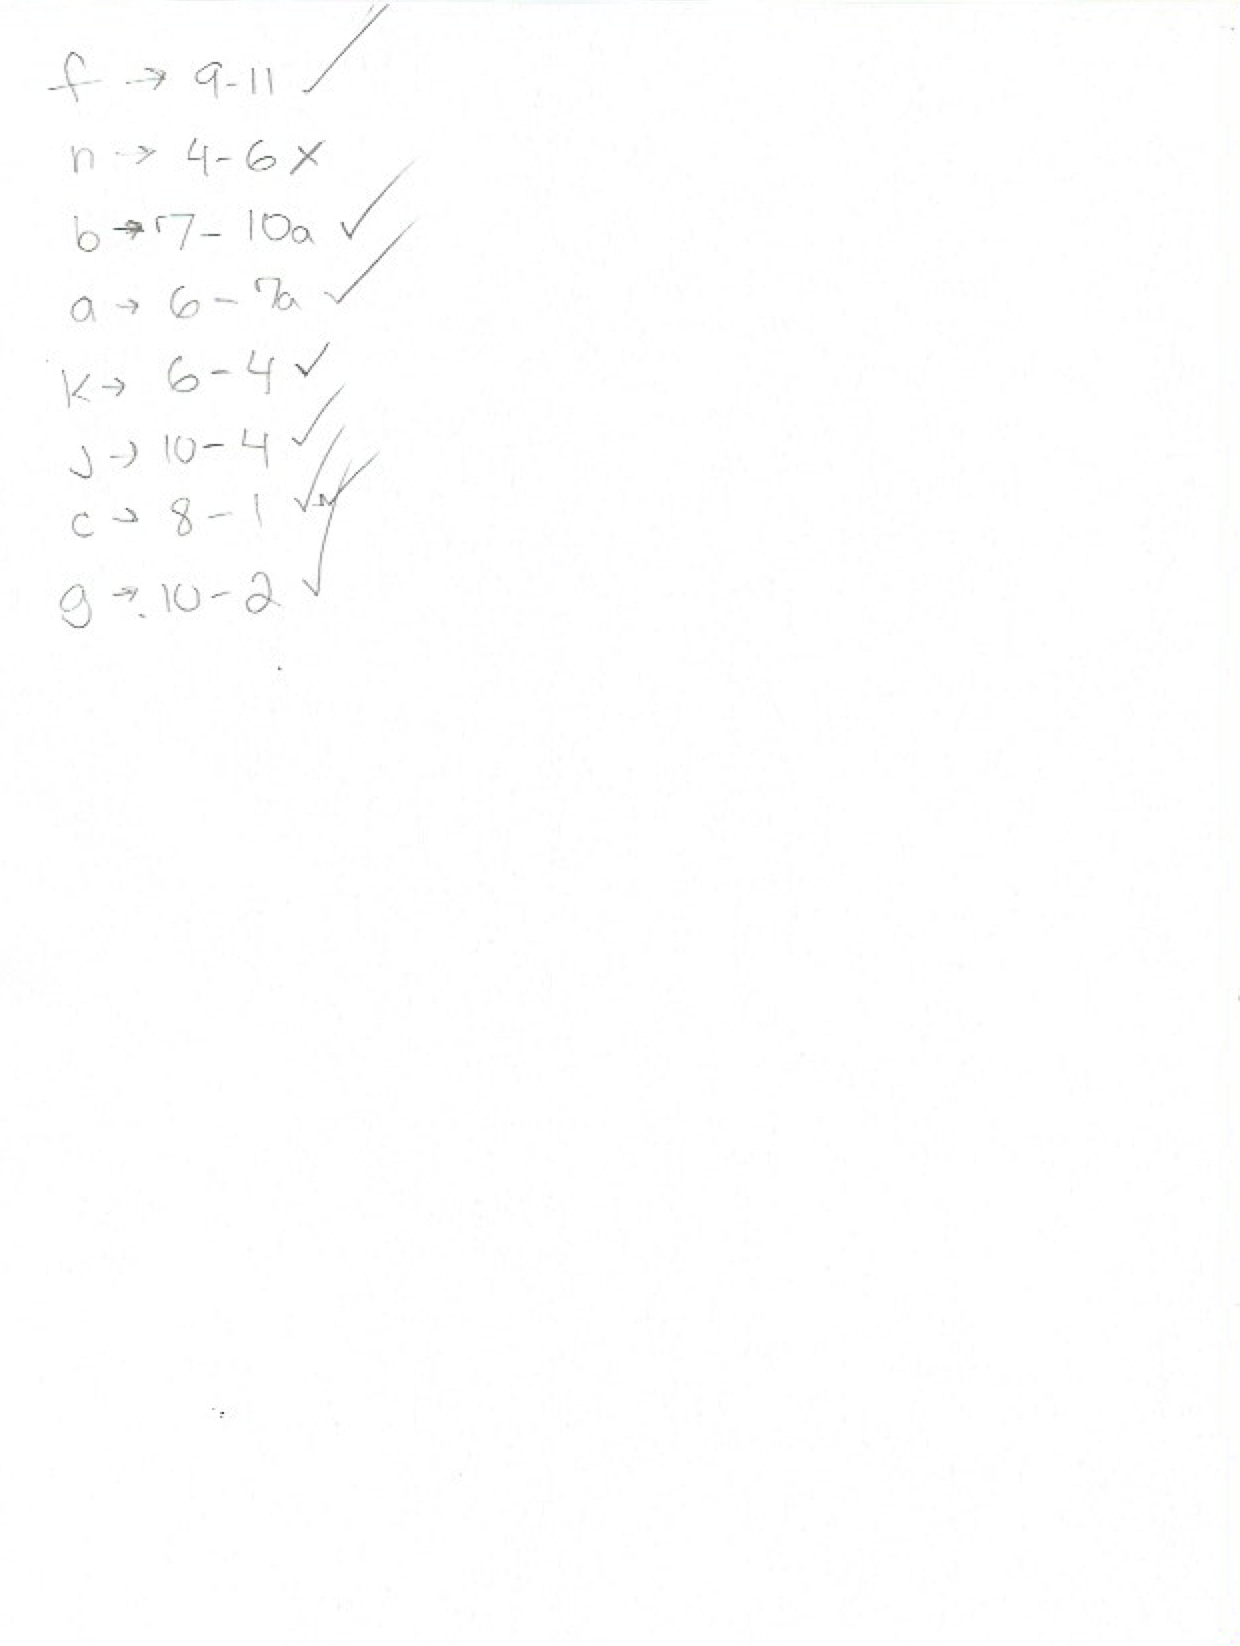 f → 9-11 ✓
n → 4-6 ×
b → 7-10a ✓
a → 6-7a ✓
k → 6-4 ✓
j → 10-4 ✓
c → 8-1 ✓
g → 10-2 ✓